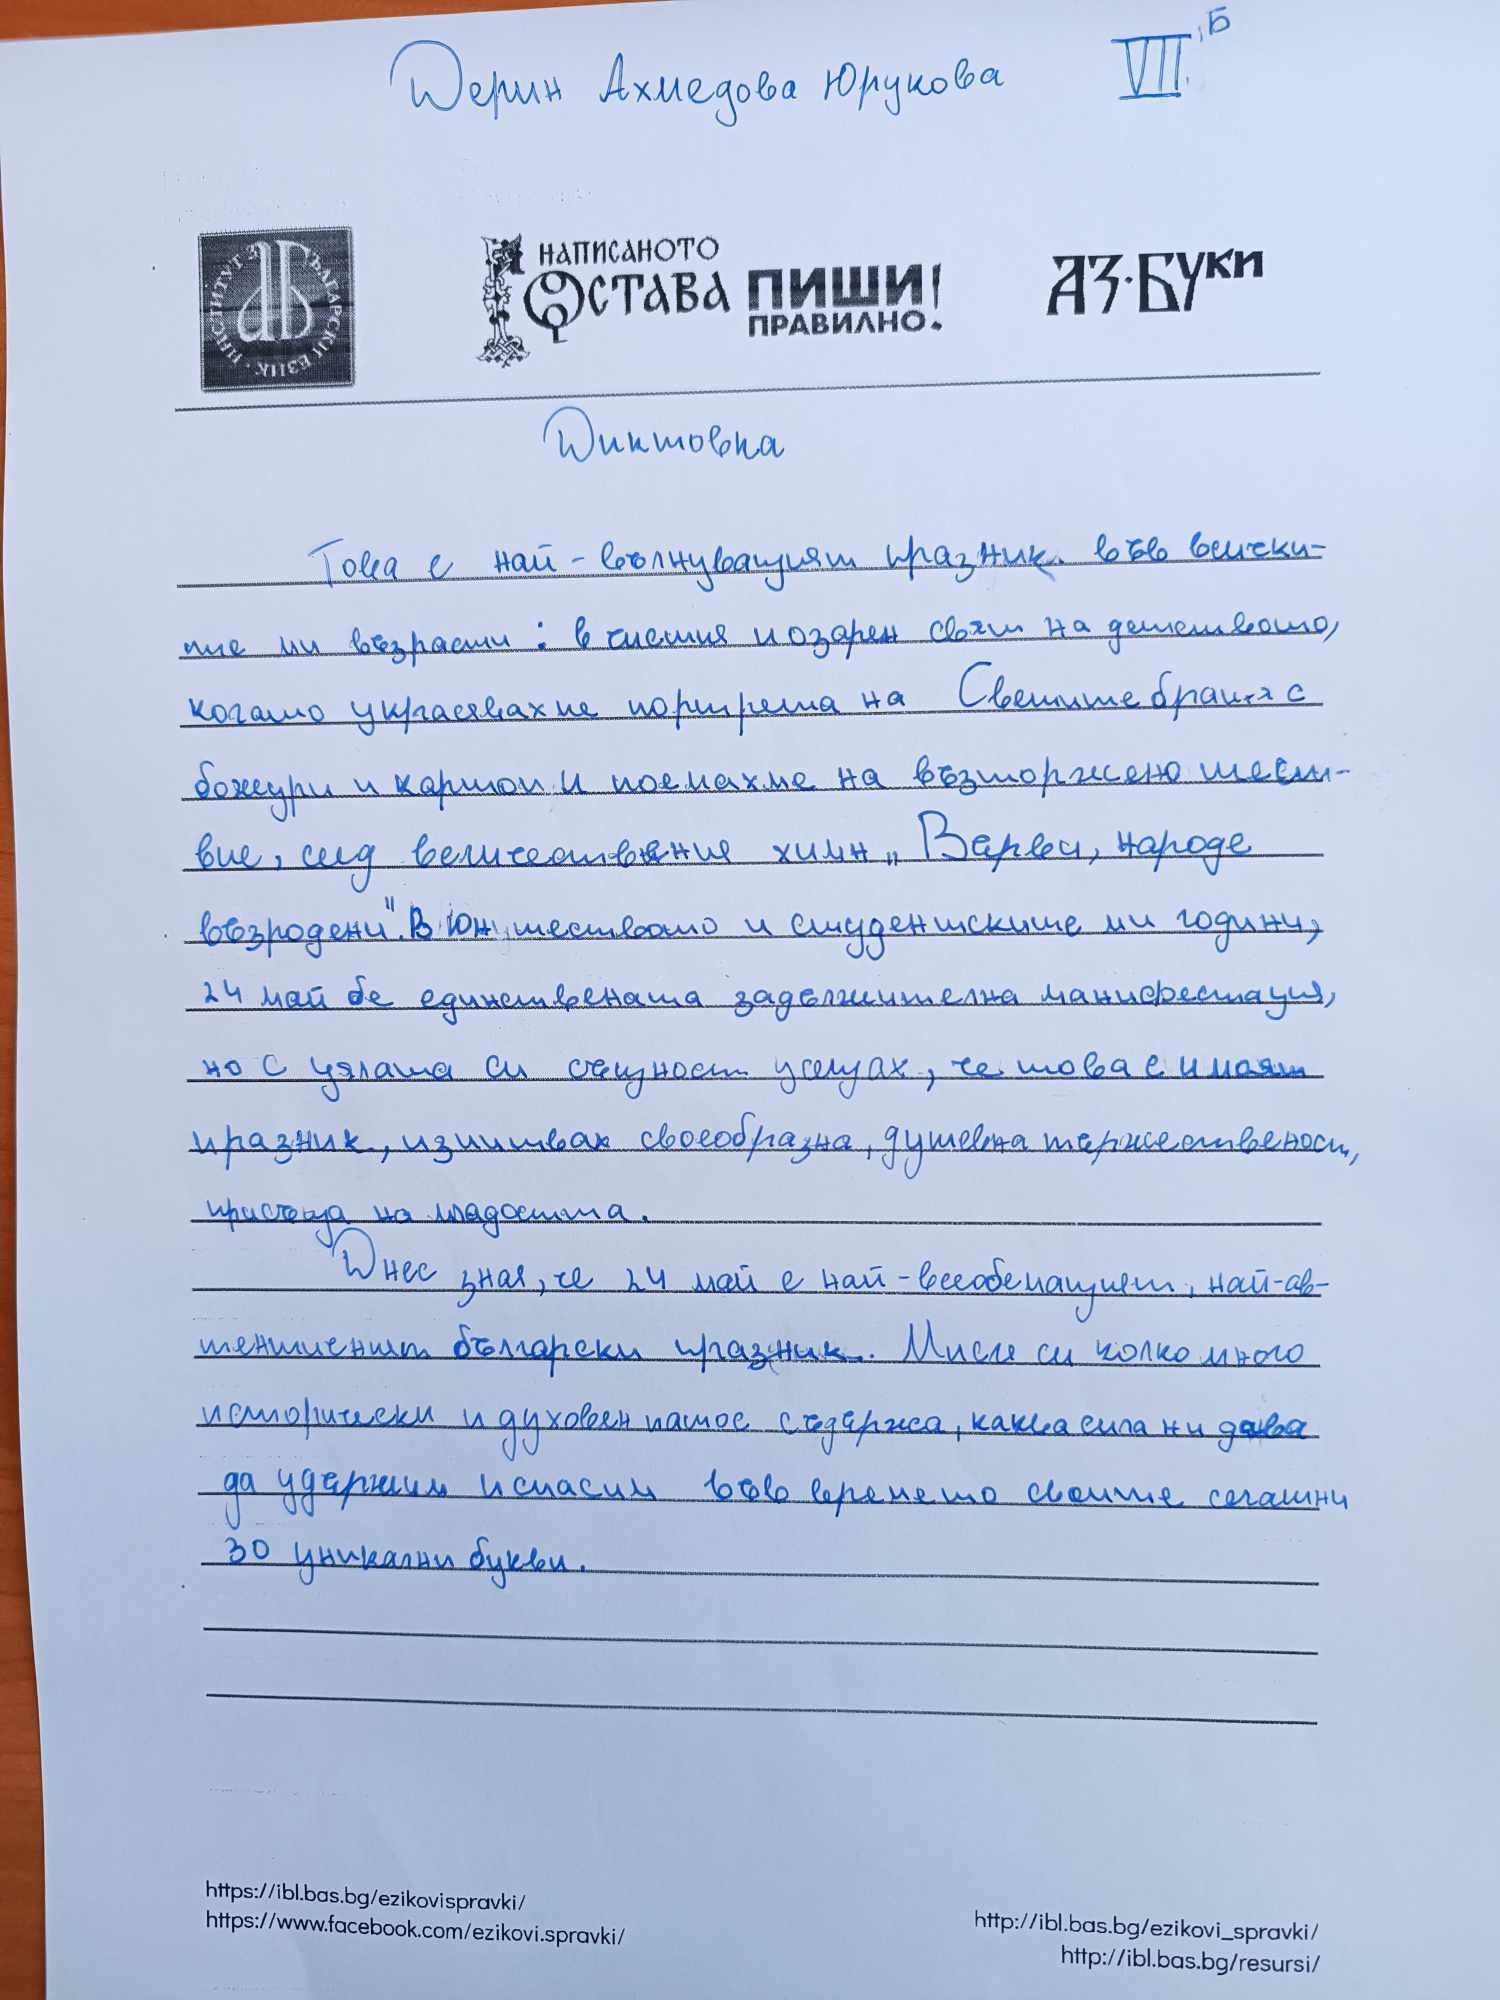 Дерин Ахмедова Юрукова VII Б
ИНСТИТУТ ЗА БЪЛГАРСКИ ЕЗИК
НАПИСАНОТО ОСТАВА ПИШИ ПРАВИЛНО! АЗ·БУКИ
Диктовка
Това е най-вълнуващият празник във всички-
те ми възрасти: в чистия и озарен свят на детството,
когато украсявахме портрета на Светите братя с
божури и картон и поемахме на възторжено шест-
вие, след величествения химн „Върви, народе
възродени". В юношеството и студентските ми години,
24 май бе единствената задължителна манифестация,
но с цялата си същност усещах, че това е и моят
празник, изпитвах своеобразна, душевна тържественост,
присъща на младостта.
Днес зная, че 24 май е най-всеобемащият, най-ав-
тентиченият български празник. Мисля си колко много
исторически и духовен патос съдържа, каква сила ни дава
да удържим и спасим във времето своите сегашни
30 уникални букви.
https://ibl.bas.bg/ezikovispravki/
https://www.facebook.com/ezikovi.spravki/
http://ibl.bas.bg/ezikovi_spravki/
http://ibl.bas.bg/resursi/